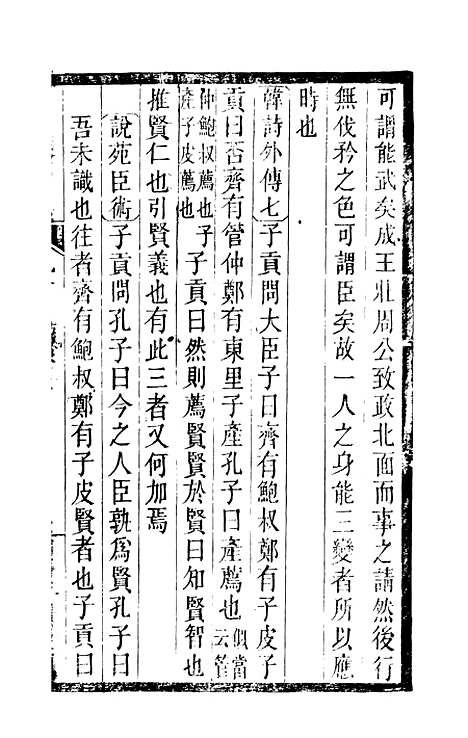 可謂能武矣成王壯周公致政北面而事之請然後行
無伐矜之色可謂臣矣故一人之身能三變者所以應
時也
韓詩外傳七子貢問大臣子曰齊有鮑叔鄭有子皮子
貢曰否齊有管仲鄭有東里子產孔子曰產薦也似當云管
仲鮑叔薦也子產子皮薦也子貢曰然則薦賢賢於賢曰知賢智也
推賢仁也引賢義也有此三者又何加焉
說苑臣術子貢問孔子曰今之人臣孰爲賢孔子曰
吾未識也往者齊有鮑叔鄭有子皮賢者也子貢曰